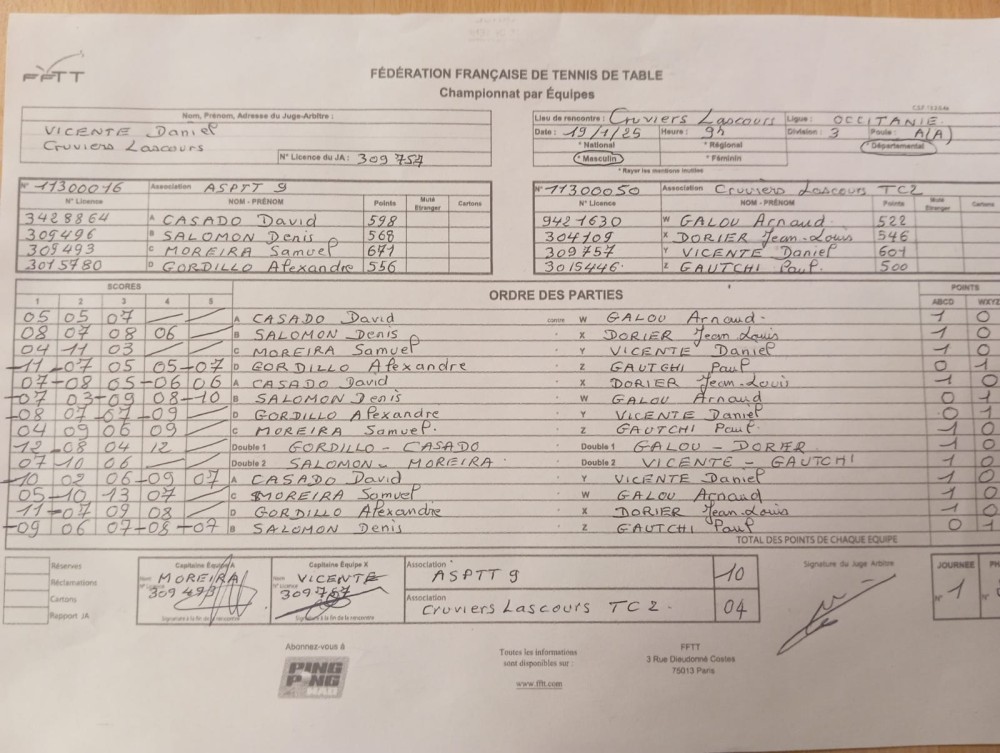 FFTT
FÉDÉRATION FRANÇAISE DE TENNIS DE TABLE
Championnat par Équipes
Nom, Prénom, Adresse du Juge-Arbitre :
VICENTE Daniel
Cruviers Lascours
N° Licence du JA : 309 757
Lieu de rencontre : Cruviers Lascours Ligue : OCCITANIE
Date : 19/1/25 Heure : 9h Division : 3 Poule : A(A)
* National * Régional * Départemental
* Masculin * Féminin
* Rayer les mentions inutiles
N° 11300016 Association ASPTT 9
N° Licence NOM - PRÉNOM Points Muté Etranger Cartons
3428864 A CASADO David 598
309496 B SALOMON Denis 568
309493 C MOREIRA Samuel 671
3015780 D GORDILLO Alexandre 556
N° 11300050 Association Cruviers Lascours TC2
N° Licence NOM - PRÉNOM Points Muté Etranger Cartons
9421630 W GALOU Arnaud 522
304109 X DORIER Jean-Louis 546
309757 Y VICENTE Daniel 601
3015446 Z GAUTCHI Paul 500
SCORES ORDRE DES PARTIES POINTS
1 2 3 4 5 ABCD WXYZ
05 05 07 A CASADO David contre W GALOU Arnaud 1 0
08 07 08 06 B SALOMON Denis X DORIER Jean Louis 1 0
04 11 03 C MOREIRA Samuel Y VICENTE Daniel 1 0
-11 -07 05 05 -07 D GORDILLO Alexandre Z GAUTCHI Paul 0 1
07 -08 05 -06 06 A CASADO David X DORIER Jean-Louis 1 0
-07 03 -09 08 -10 B SALOMON Denis W GALOU Arnaud 0 1
-08 07 -07 -09 D GORDILLO Alexandre Y VICENTE Daniel 0 1
04 09 06 09 C MOREIRA Samuel Z GAUTCHI Paul 1 0
12 -08 04 12 Double 1 GORDILLO - CASADO Double 1 GALOU - DORIER 1 0
07 10 06 Double 2 SALOMON - MOREIRA Double 2 VICENTE - GAUTCHI 1 0
-10 02 06 -09 07 A CASADO David Y VICENTE Daniel 1 0
05 -10 13 07 C MOREIRA Samuel W GALOU Arnaud 1 0
11 -07 09 08 D GORDILLO Alexandre X DORIER Jean-Louis 1 0
-09 06 07 -08 -07 B SALOMON Denis Z GAUTCHI Paul 0 1
TOTAL DES POINTS DE CHAQUE EQUIPE
Réserves
Réclamations
Cartons
Rapport JA
Capitaine Équipe A
Nom MOREIRA
N° Licence 309 493
Signature à la fin de la rencontre
Capitaine Équipe X
Nom VICENTE
N° Licence 309757
Signature à la fin de la rencontre
Association ASPTT 9 10
Association Cruviers Lascours TC 2 04
Signature du Juge Arbitre
JOURNÉE
N° 1
Abonnez-vous à
PING PONG MAG
Toutes les informations
sont disponibles sur :
www.fftt.com
FFTT
3 Rue Dieudonné Costes
75013 Paris